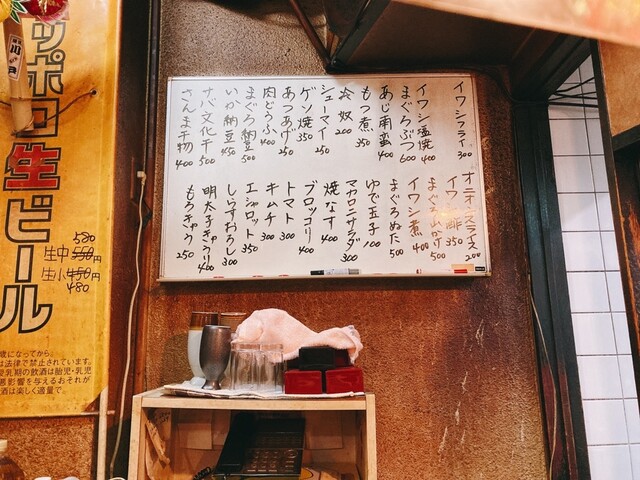 イワシフライ 300
イワシ塩焼 400
まぐろぶつ 600
あじ南蛮 400
もつ煮 350
冷奴 200
シューマイ 250
ゲソ焼 350
あつあげ 250
肉どうふ 400
まぐろ納豆 500
いか納豆 450
サバ文化干 500
さんま干物 400
オニオンスライス 200
イワシ酢 350
まぐろ山かけ 500
イワシ煮 400
まぐろぬた 500
ゆで玉子 100
マカロニサラダ 300
焼なす 400
ブロッコリー 400
トマト 300
キムチ 300
エシャロット 350
しらすおろし 300
明太子きゅうり 400
もろきゅう 250
ッポロ生ビール
580
生中550円
生小450円
480
歳になってから。
は法律で禁止されています。
乳期の飲酒は胎児・乳児
悪影響を与えるおそれが
酒は楽しく適量で。